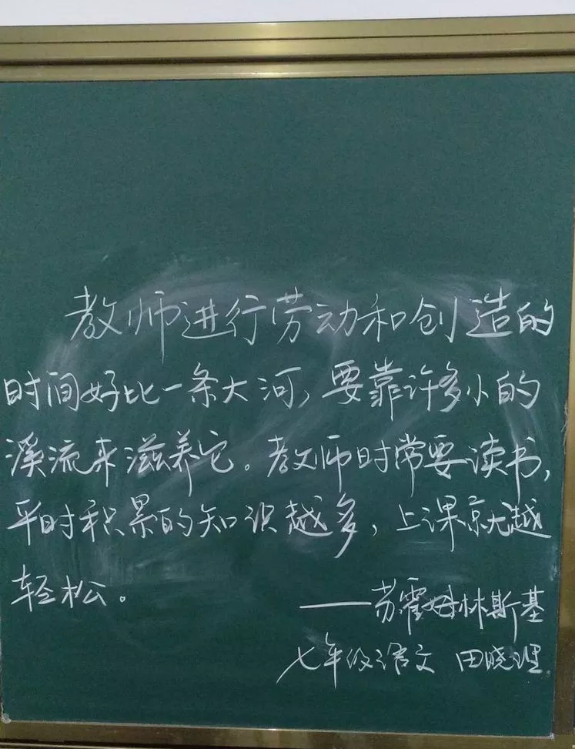 教师进行劳动和创造的
时间好比一条大河，要靠许多小的
溪流来滋养它。教师时常要读书，
平时积累的知识越多，上课就越
轻松。
——苏霍姆林斯基
七年级语文 田晓理